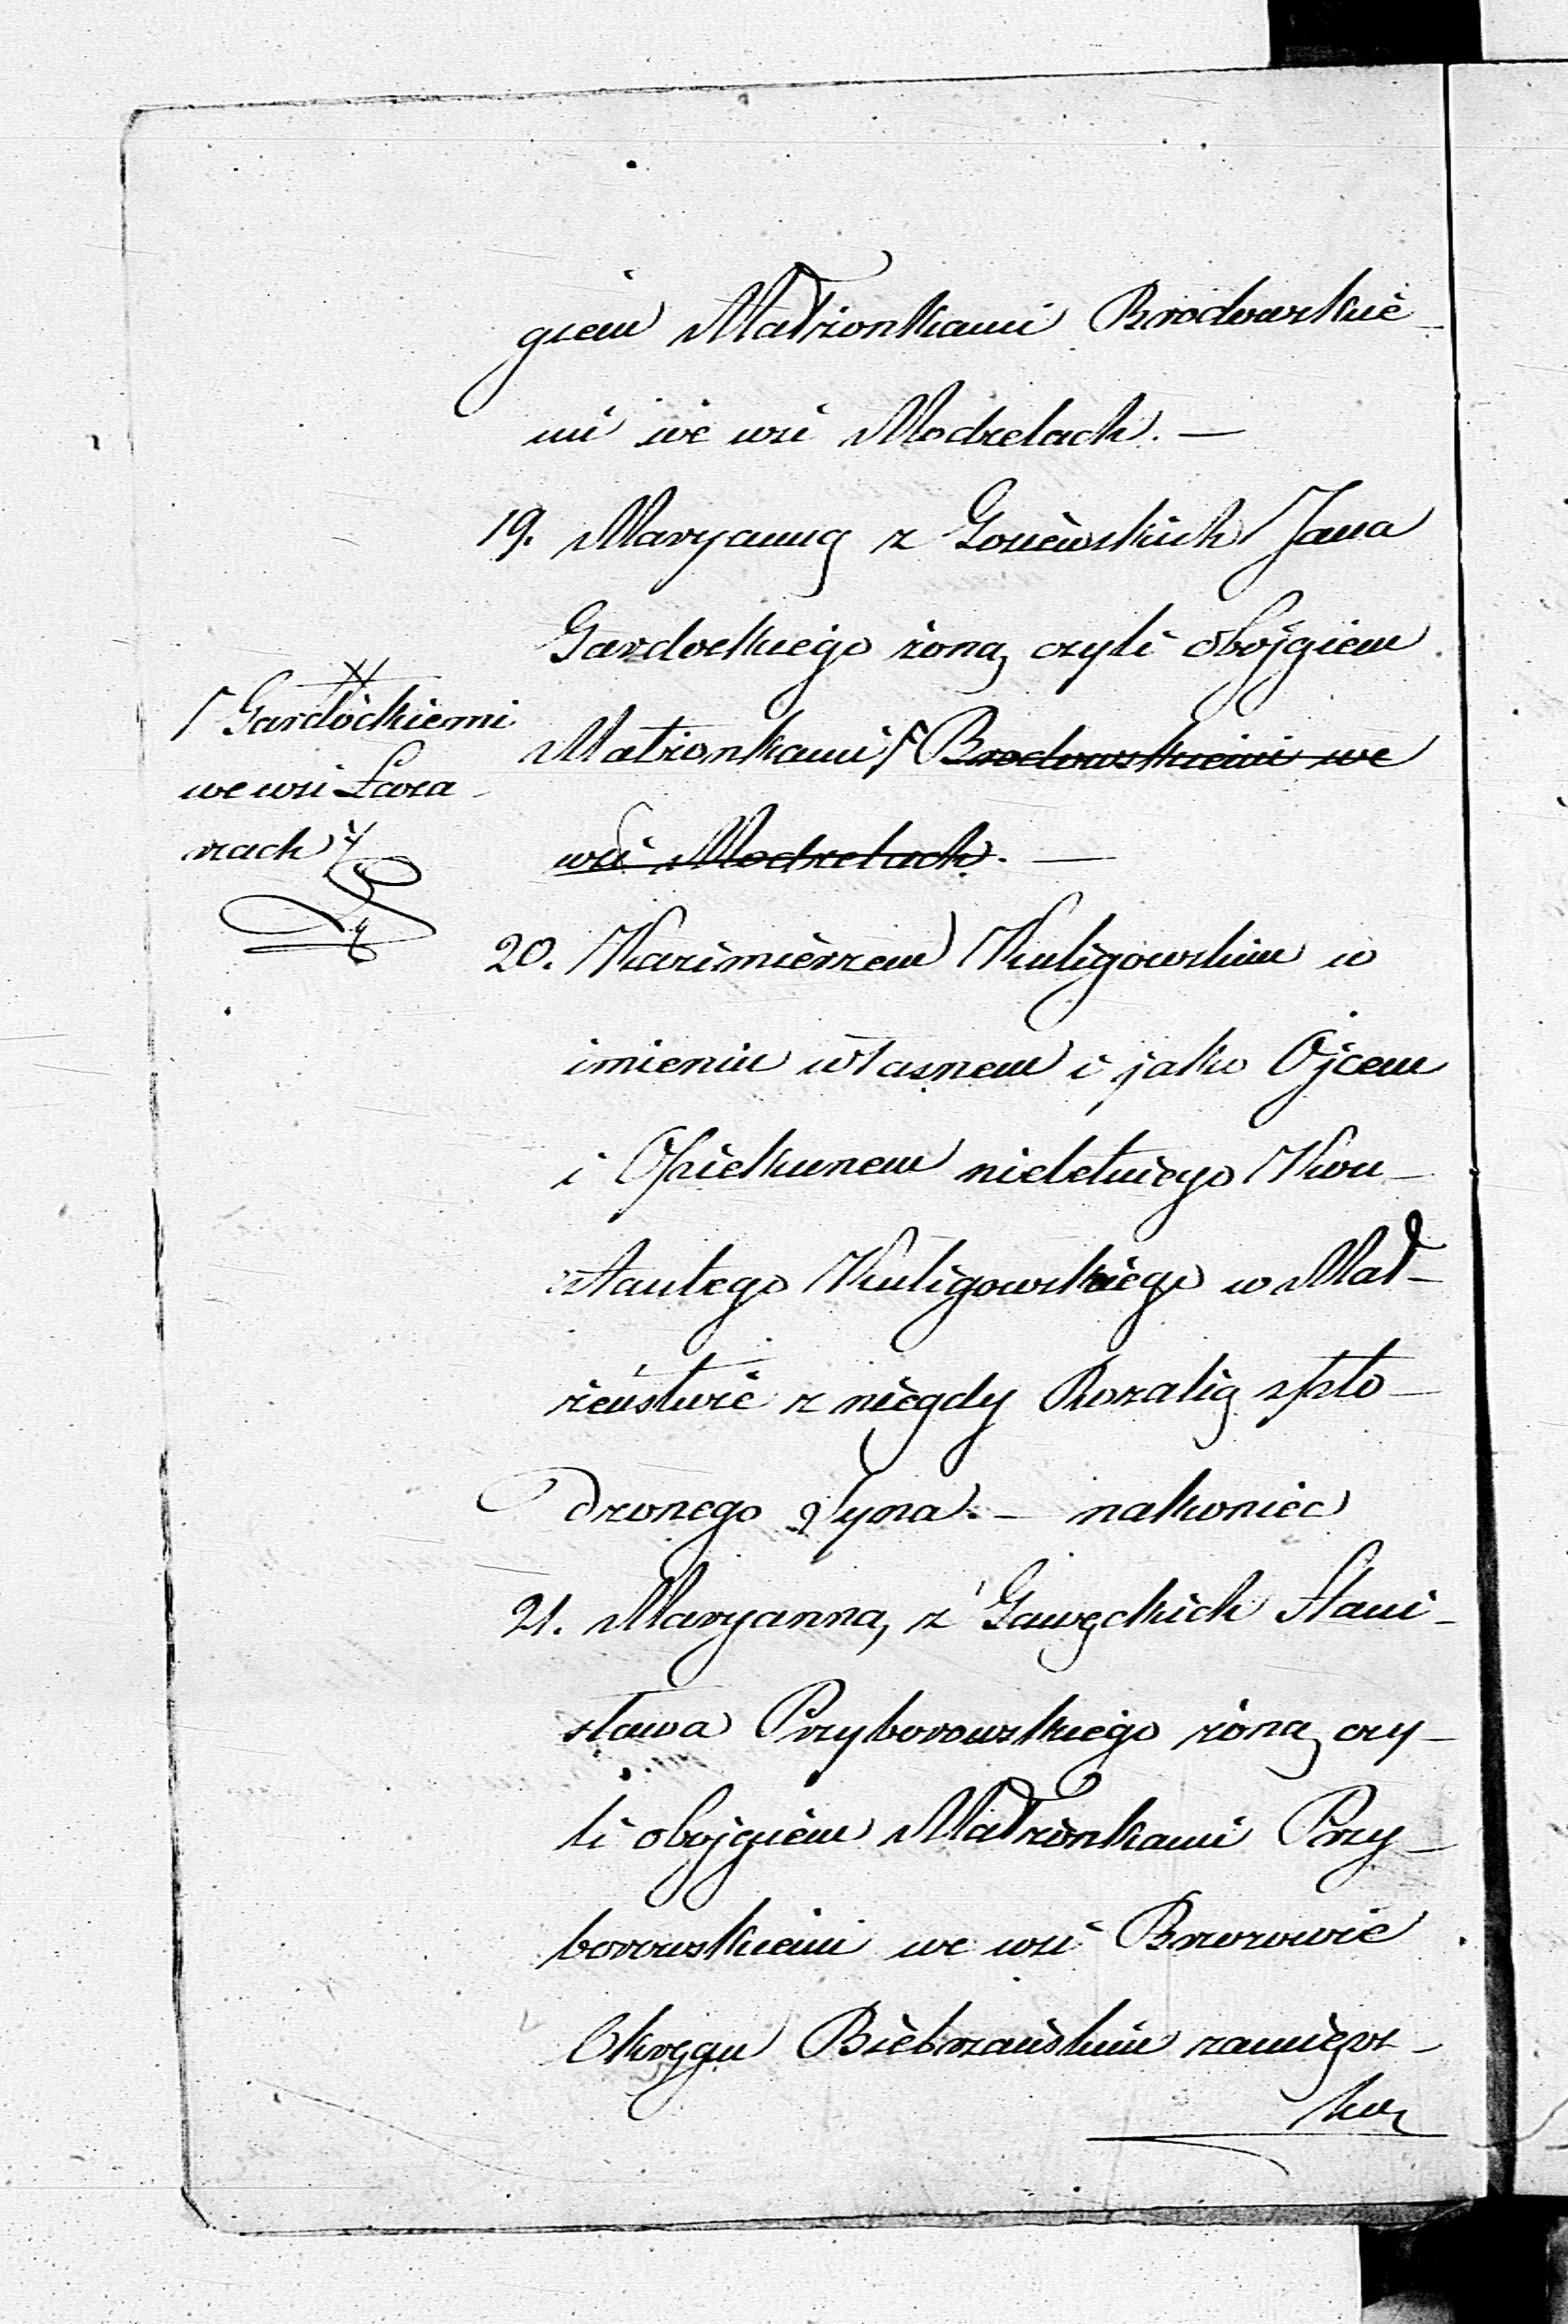 giem Małżonkami Brodowskie-
mi we wsi Modzelach. —
19. Maryanną z Gosiewskich Jana
Gardockiego żoną, czyli obojgiem
Małżonkami Brodowskiemi we
wsi Modzelach. —
Gardockiemi
we wsi Łaza-
rzach
20. Kazimierzem Kuligowskim w
imieniu własnem i jako Ojcem
i Opiekunem nieletniego Kon-
stantego Kuligowskiego w Mał-
żeństwie z niegdy Rozalią spło-
dzonego Syna. — nakoniec
21. Maryanną z Gawęckich Stani-
sława Przyborowskiego żoną, czy-
li obojgiem Małżonkami Przy-
borowskiemi we wsi Brzozowie
Okręgu Biebrzańskim zamiesz-